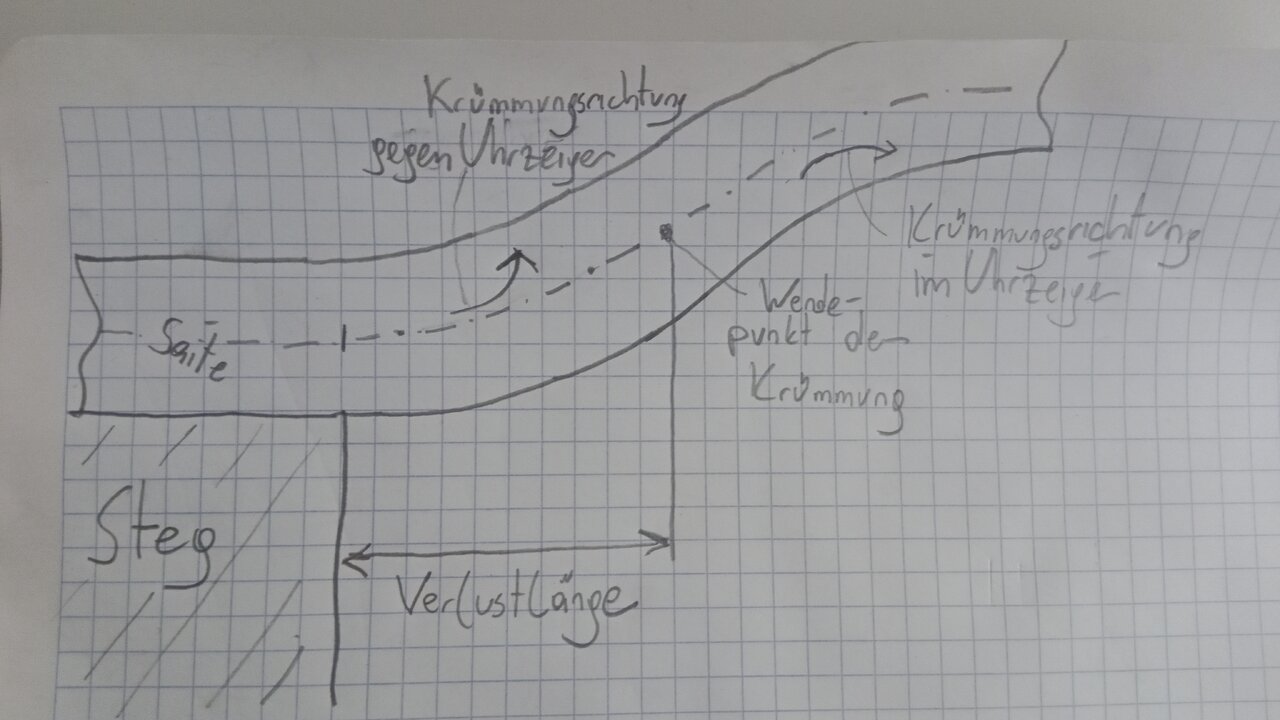 Krümmungsrichtung
gegen Uhrzeiger
Saite
Krümmungsrichtung
im Uhrzeiger
Wende-
punkt der
Krümmung
Steg
Verlustlänge